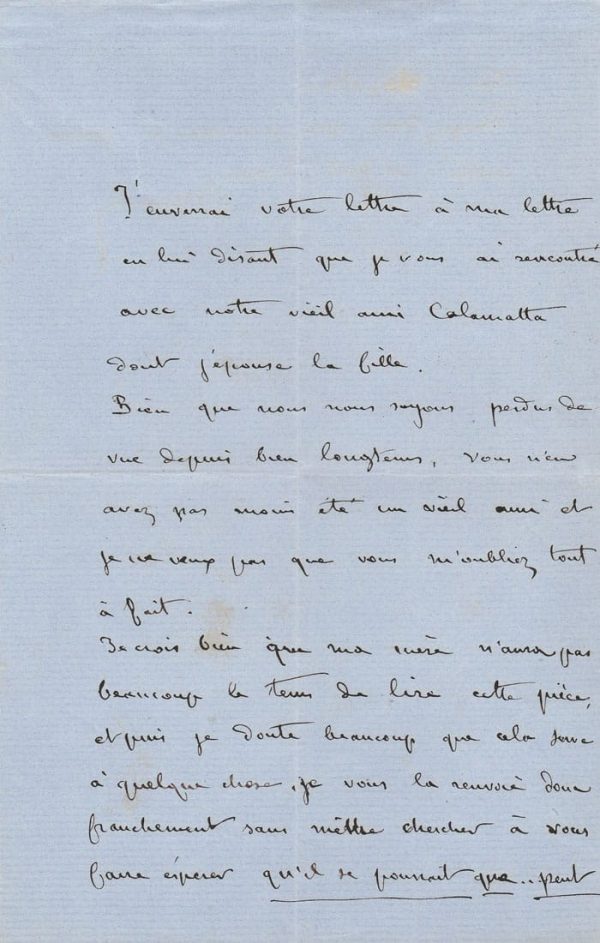 J'enverrai votre lettre à ma lettre
en lui disant que je vous ai rencontré
avec notre vieil ami Calamatta
dont j'épouse la fille.
Bien que nous nous soyons perdus de
vue depuis bien longtems, vous n'en
avez pas moins été un vieil ami et
je ne veux pas que vous m'oubliez tout
à fait.
Je crois bien que ma mère n'aura pas
beaucoup le tems de lire cette pièce,
et puis je doute beaucoup que cela serve
à quelque chose, je vous la renvoie donc
franchement sans chercher à vous
faire espérer qu'il se pourrait que.. peut